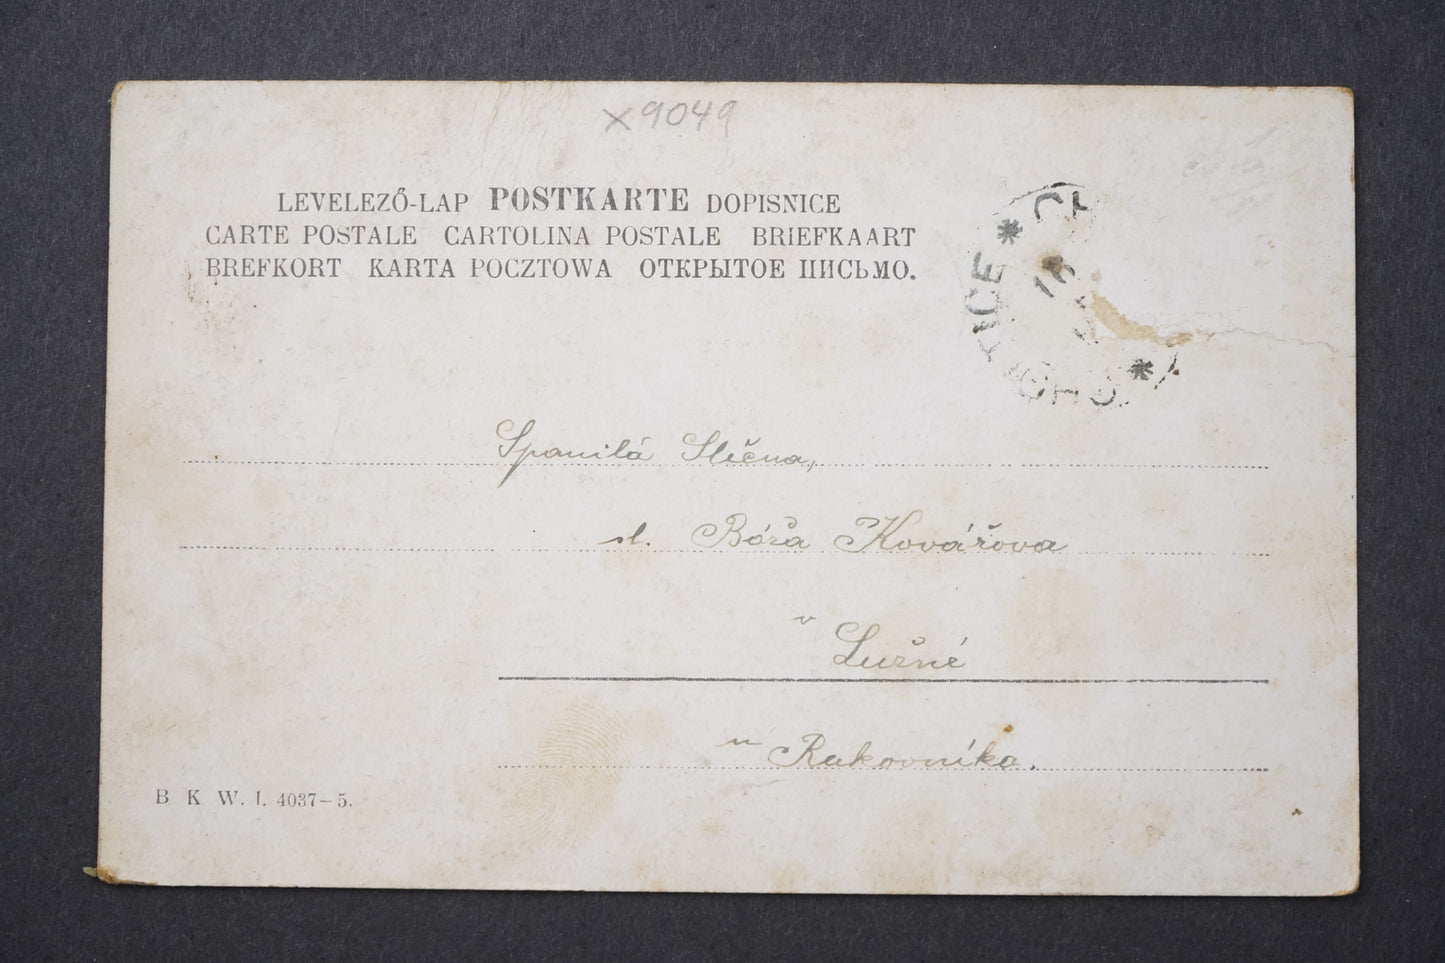 x9049
LEVELEZŐ-LAP POSTKARTE DOPISNICE
CARTE POSTALE CARTOLINA POSTALE BRIEFKAART
BREFKORT KARTA POCZTOWA ОТКРЫТОЕ ПИСЬМО.
TICE * CH
16
Spanilá Slečna,
sl. Bóža Kovářova
v
Lužné
u Rakovníka.
B K W. I. 4037-5.